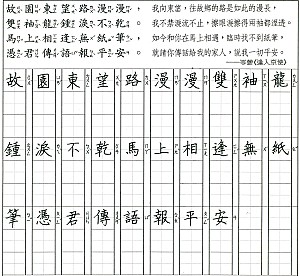 故園東望路漫漫，
雙袖龍鍾淚不乾。
馬上相逢無紙筆，
憑君傳語報平安。
我向東望，往故鄉的路是如此的漫長，
我不禁淚流不止，擦眼淚擦得兩袖都溼透。
如今和你在馬上相遇，臨時找不到紙筆，
就請你傳話給我的家人，說我一切平安。
——岑參《逢入京使》
故園東望路漫漫雙袖龍
鍾淚不乾馬上相逢無紙
筆憑君傳語報平安